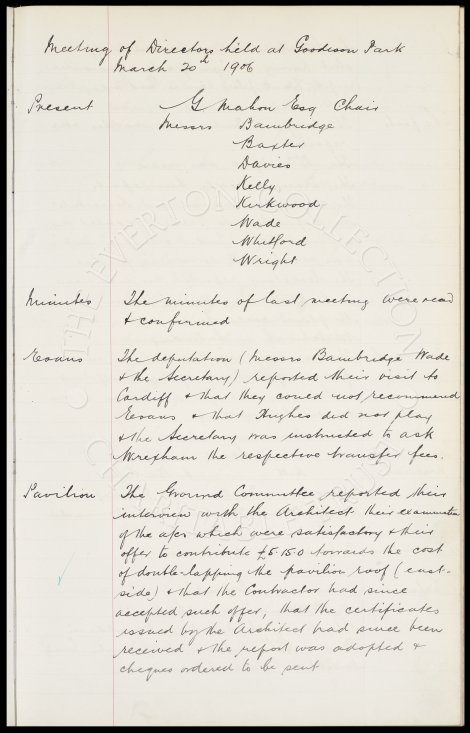 Meeting of Directors held at Goodison Park
March 20th 1906
Present G Mahon Esq Chair
Messrs Bainbridge
Baxter
Davies
Kelly
Kirkwood
Wade
Whitford
Wright
Minutes The minutes of last meeting were read
& confirmed
Evans The deputation (Messrs Bainbridge Wade
& the Secretary) reported their visit to
Cardiff & that they could not recommend
Evans & that Hughes did not play
& the Secretary was instructed to ask
Wrexham the respective transfer fees.
Pavilion The Ground Committee reported their
interview with the Architect their examination
of the a/cs which were satisfactory & their
offer to contribute £5.15.0 towards the cost
of double-lapping the pavilion roof (east-
side) & that the Contractor had since
accepted such offer, that the certificates
issued by the Architect had since been
received & the report was adopted &
cheques ordered to be sent
THE EVERTON COLLECTION